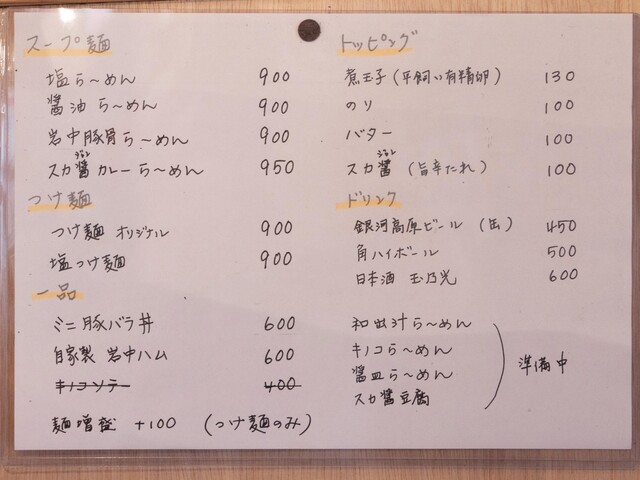 スープ麺
塩らーめん 900
醤油らーめん 900
岩中豚骨らーめん 900
ジャン
スカ醤カレーらーめん 950
つけ麺
つけ麺 オリジナル 900
塩つけ麺 900
一品
ミニ豚バラ丼 600
自家製 岩中ハム 600
キノコソテー 400
麺増盛 +100 (つけ麺のみ)
トッピング
煮玉子(平飼い有精卵) 130
のり 100
バター 100
ジャン
スカ醤(旨辛たれ) 100
ドリンク
銀河高原ビール (缶) 450
角ハイボール 500
日本酒 玉乃光 600
和出汁らーめん
キノコらーめん
醤皿らーめん
スカ醤豆腐
準備中